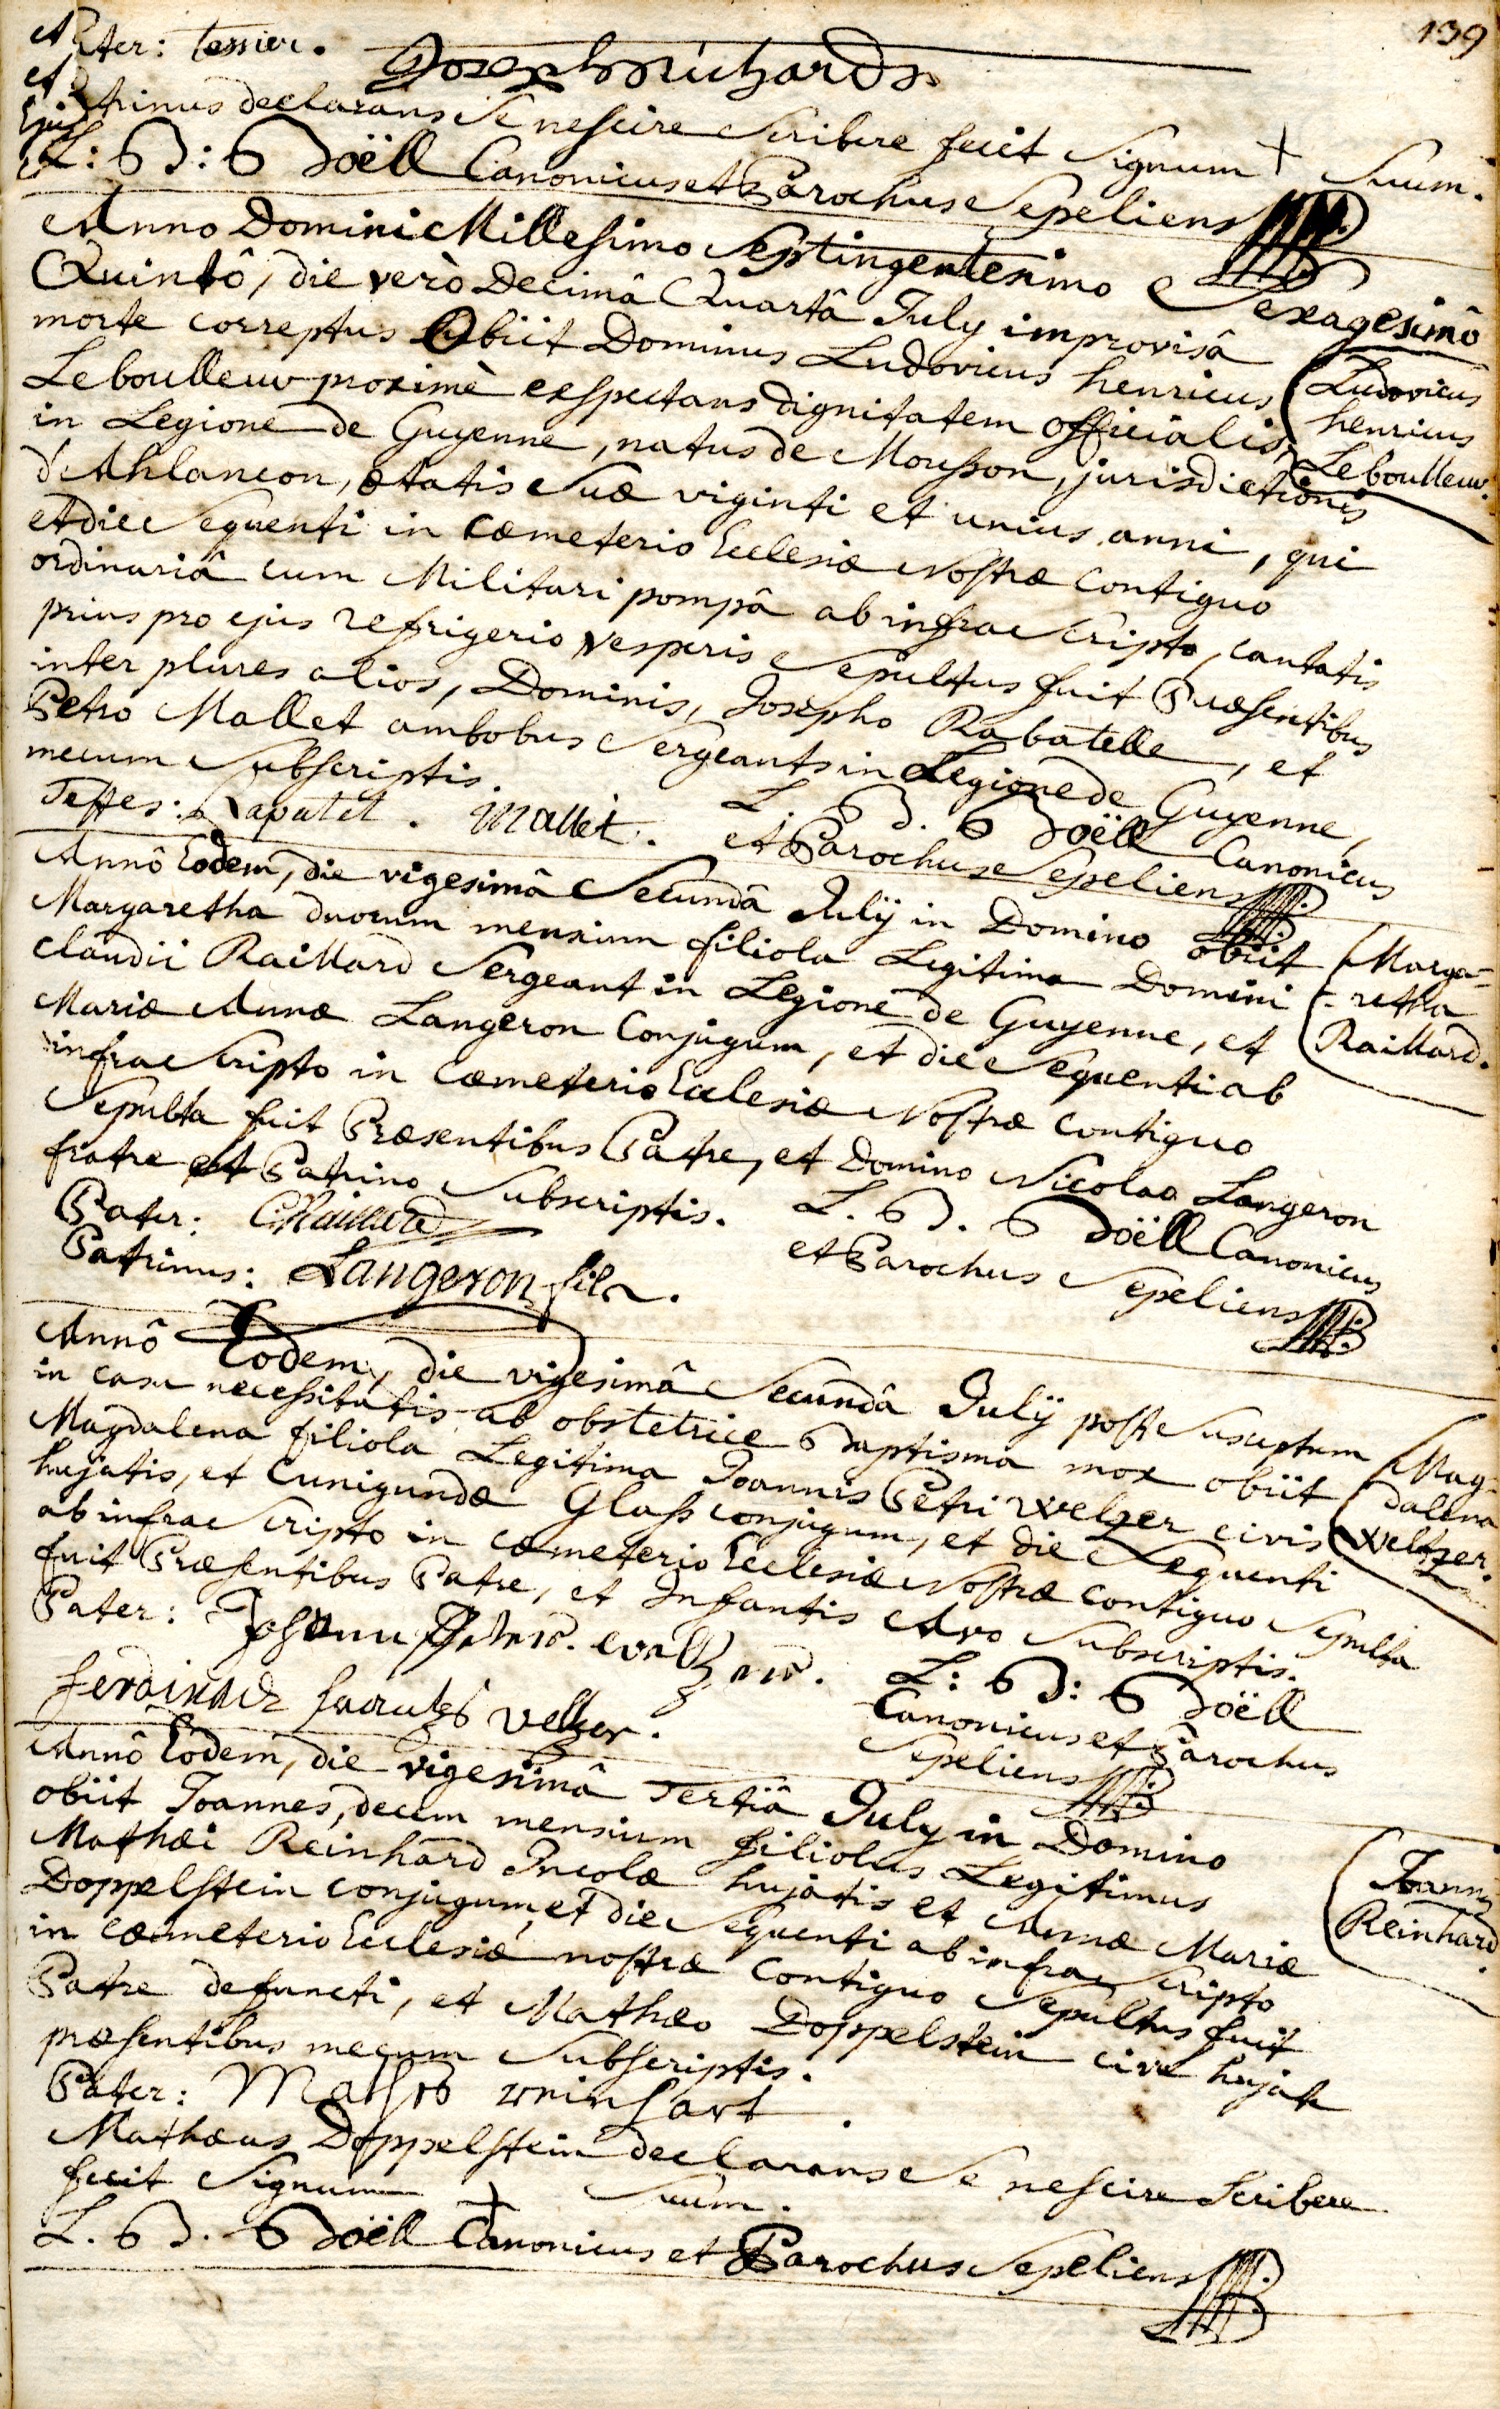 139
Pater: tessier.
Joseph richards
Patrinus declarans se nescire scribere fecit signum + suum.
L: B: Boëll Canonicus et Parochus sepeliens
Anno Domini Millesimo Septingentesimo Sexagesimô
Quintô, die verò Decimâ Quartâ July improvisâ
morte correptus Obiit Dominus Ludovicus henricus
Leboulleux proximè exspectans dignitatem officialis,
in Legione de Guyenne, natus de Mousson, jurisdictionis
d'Ahlancon, ætatis suæ viginti et unius anni, qui
et die sequenti in cœmeterio Ecclesiæ Nostræ contiguo
ordinariâ cum Militari pompâ ab infrascripto, cantatis
prius pro ejus refrigerio vesperis sepultus fuit Præsentibus
inter plures alios, Dominis, Josepho Rabatelle, et
Petro Mallet ambobus sergeants in Legione de Guyenne,
mecum subscriptis.
Ludovicus
henricus
Leboulleux.
L. B. Boëll Canonicus
et Parochus sepeliens
Testes: Rapatel. Mallet.
Annô Eodem, die vigesimâ secundâ Julÿ in Domino obiit
Margaretha duorum mensium filiola Legitima Domini
claudii Raillard sergeant in Legione de Guyenne, et
Mariæ Annæ Langeron Conjugum, et die sequenti ab
infrascripto in cœmeterio Ecclesiæ Nostræ contiguo
sepulta fuit Præsentibus Patre, et Domino Nicolao Langeron
fratre et Patrino subscriptis.
Marga=
=retha
Raillard.
L. B. Boëll Canonicus
et Parochus sepeliens
Pater: C Raillard
Patrinus: Langeron fils.
Annô Eodem, die vigesimâ secundâ Julÿ post susceptum
in casu necessitatis ab obstetrice Baptisma mox obiit
Magdalena filiola Legitima Joannis Petri Welzer civis
hujatis, et Cunigundæ Glass conjugum, et die sequenti
ab infrascripto in cœmeterio Ecclesiæ Nostræ contiguo sepulta
fuit Præsentibus Patre, et Infantis Avo subscriptis.
Mag-
dalena
Weltzer.
Pater: Johann
L: B: Boëll
Canonicus et Parochus
sepeliens
ferdinadt velzer.
Annô Eodem, die vigesimâ Tertiâ July in Domino
obiit Joannes, decem mensium filiolus Legitimus
Mathæi Reinhard Incolæ hujatis et Annæ Mariæ
Doppelstein conjugum, et die sequenti ab infrascripto
in cœmeterio Ecclesiæ nostræ contiguo sepultus fuit
Patre defuncti, et Mathæo Doppelstein cive hujate
præsentibus mecum subscriptis.
Joannes
Reinhard.
Pater: Mathes reinhart.
Mathæus Doppelstein declarans se nescire scribere
fecit signum + suum.
L. B. Boëll Canonicus et Parochus sepeliens